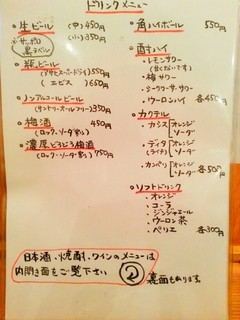 ドリンクメニュー
◦生ビール (中)450円
サッポロ黒ラベル (小)350円
◦瓶ビール
(アサヒスーパードライ)550円
(エビス) 650円
◦ノンアルコールビール
(サントリーオールフリー)350円
◦梅酒 450円
(ロック、ソーダ割り)
◦濃厚どろどろ梅酒
(ロック、ソーダ割り)750円
◦角ハイボール 550円
◦酎ハイ
◦レモンサワー
(甘くないです)
◦梅サワー
◦シークヮーサーサワー
◦ウーロンハイ 各450円
◦カクテル
◦カシス オレンジ
ソーダ
◦ディタ オレンジ
(ライチ) ソーダ
◦カンパリ オレンジ
ソーダ 各500円
◦ソフトドリンク
◦オレンジ
◦コーラ
◦ジンジャエール
◦ウーロン茶
◦ペリエ 各300円
日本酒、焼酎、ワインのメニューは
内開き面をご覧下さい
裏面もあります。